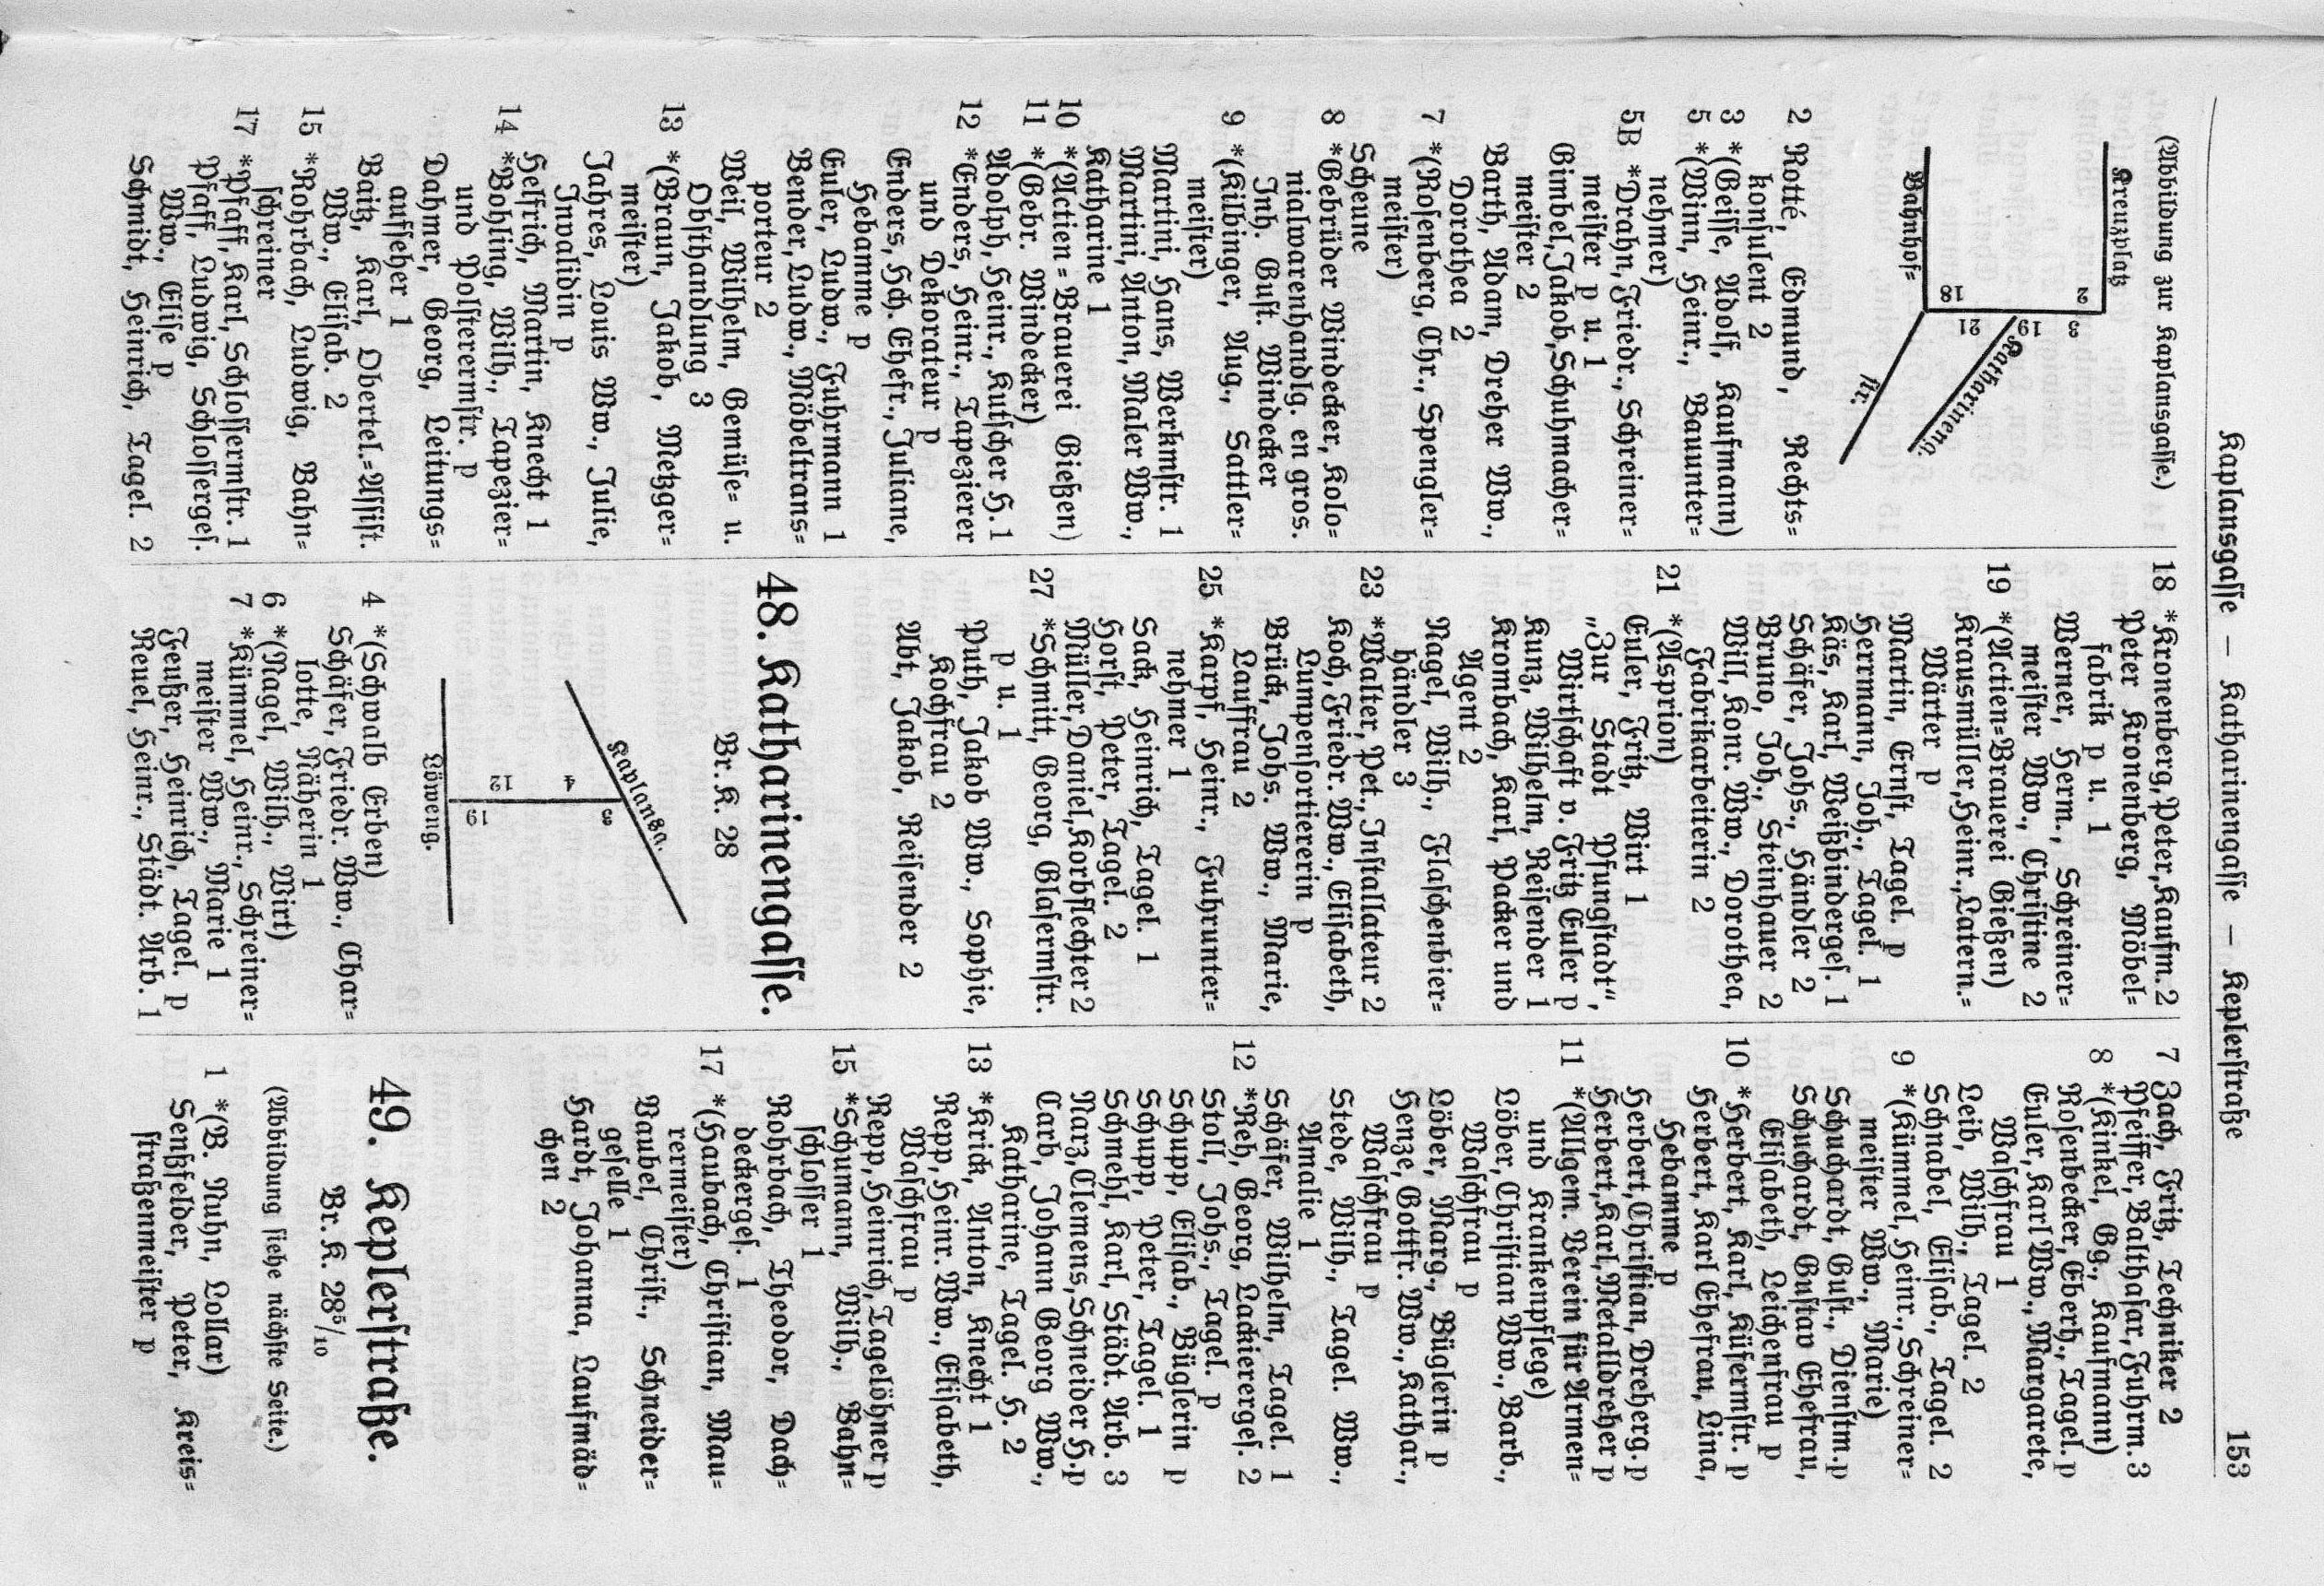 Kaplansgasse — Katharinengasse — Keplerstraße 153
(Abbildung zur Kaplansgasse.)
Kreuzplatz
2
3
19
Katharineng.
18
21
Bahnhof=
str.
2 Rotté, Edmund, Rechts=
konsulent 2
3 *(Geisse, Adolf, Kaufmann)
5 *(Winn, Heinr., Bauunter=
nehmer)
5B *Drahn, Friedr., Schreiner=
meister p u. 1
Gimbel, Jakob, Schuhmacher=
meister 2
Barth, Adam, Dreher Ww.,
Dorothea 2
7 *(Rosenberg, Chr., Spengler=
meister)
Scheune
8 *Gebrüder Windecker, Kolo=
nialwarenhandlg. en gros.
Inh. Gust. Windecker
9 *(Kilbinger, Aug., Sattler=
meister)
Martini, Hans, Werkmstr. 1
Martini, Anton, Maler Ww.,
Katharine 1
10 *(Actien=Brauerei Gießen)
11 *(Gebr. Windecker)
Adolph, Heinr., Kutscher H. 1
12 *Enders, Heinr., Tapezierer
und Dekorateur p
Enders, Hch. Ehefr., Juliane,
Hebamme p
Euler, Ludw., Fuhrmann 1
Bender, Ludw., Möbeltrans=
porteur 2
Weil, Wilhelm, Gemüse= u.
Obsthandlung 3
13 *(Braun, Jakob, Metzger=
meister)
Jahres, Louis Ww., Julie,
Invalidin p
Helfrich, Martin, Knecht 1
14 *Bohling, Wilh., Tapezier=
und Polsterermstr. p
Dahmer, Georg, Leitungs=
aufseher 1
Baitz, Karl, Obertel.=Assist.
Ww., Elisab. 2
15 *Rohrbach, Ludwig, Bahn=
schreiner
17 *Pfaff, Karl, Schlossermstr. 1
Pfaff, Ludwig, Schlosserges.
Ww., Elise p
Schmidt, Heinrich, Tagel. 2
18 *Kronenberg, Peter, Kaufm. 2
Peter Kronenberg, Möbel=
fabrik p u. 1
Werner, Herm., Schreiner=
meister Ww., Christine 2
19 *(Actien=Brauerei Gießen)
Krausmüller, Heinr., Latern.=
Wärter p
Martin, Ernst, Tagel. p
Hermann, Joh., Tagel. 1
Käs, Karl, Weißbinderges. 1
Schäfer, Johs., Händler 2
Bruno, Joh., Steinhauer 2
Will, Konr. Ww., Dorothea,
Fabrikarbeiterin 2
21 *(Asprion)
Euler, Fritz, Wirt 1
„Zur Stadt Pfungstadt“,
Wirtschaft v. Fritz Euler p
Kunz, Wilhelm, Reisender 1
Krombach, Karl, Packer und
Agent 2
Nagel, Wilh., Flaschenbier=
händler 3
23 *Walter, Pet., Installateur 2
Koch, Friedr. Ww., Elisabeth,
Lumpensortiererin p
Brück, Johs. Ww., Marie,
Lauffrau 2
25 *Karpf, Heinr., Fuhrunter=
nehmer 1
Sack, Heinrich, Tagel. 1
Horst, Peter, Tagel. 2
Müller, Daniel, Korbflechter 2
27 *Schmitt, Georg, Glasermstr.
p u. 1
Puth, Jakob Ww., Sophie,
Kochfrau 2
Abt, Jakob, Reisender 2
48. Katharinengasse.
Br. K. 28
Kaplansg.
4
3
12
19
Löweng.
4 *(Schwalb Erben)
Schäfer, Friedr. Ww., Char=
lotte, Näherin 1
6 *(Nagel, Wilh., Wirt)
7 *Kümmel, Heinr., Schreiner=
meister Ww., Marie 1
Jeußer, Heinrich, Tagel. p
Reuel, Heinr., Städt. Arb. 1
7 Zach, Fritz, Techniker 2
Pfeiffer, Balthasar, Fuhrm. 3
8 *(Kinkel, Gg., Kaufmann)
Rosenbecker, Eberh., Tagel. p
Euler, Karl Ww., Margarete,
Waschfrau 1
Leib, Wilh., Tagel. 2
Schnabel, Elisab., Tagel. 2
9 *(Kümmel, Heinr., Schreiner=
meister Ww., Marie)
Schuchardt, Gust., Dienstm. p
Schuchardt, Gustav Ehefrau,
Elisabeth, Leichenfrau p
10 *Herbert, Karl, Küfermstr. p
Herbert, Karl Ehefrau, Lina,
Hebamme p
Herbert, Christian, Dreherg. p
Herbert, Karl, Metalldreher p
11 *(Allgem. Verein für Armen=
und Krankenpflege)
Löber, Christian Ww., Barb.,
Waschfrau p
Löber, Marg., Büglerin p
Henze, Gottfr. Ww., Kathar.,
Waschfrau p
Stede, Wilh., Tagel. Ww.,
Amalie 1
Schäfer, Wilhelm, Tagel. 1
12 *Reh, Georg, Lackiererges. 2
Stoll, Johs., Tagel. p
Schupp, Elisab., Büglerin p
Schupp, Peter, Tagel. 1
Schmehl, Karl, Städt. Arb. 3
Marz, Clemens, Schneider H. p
Carb, Johann Georg Ww.,
Katharine, Tagel. H. 2
13 *Krick, Anton, Knecht 1
Repp, Heinr. Ww., Elisabeth,
Waschfrau p
Repp, Heinrich, Tagelöhner p
15 *Schumann, Wilh., Bahn=
schlosser 1
Rohrbach, Theodor, Dach=
deckerges. 1
17 *(Haubach, Christian, Mau=
rermeister)
Baubel, Christ., Schneider=
geselle 1
Hardt, Johanna, Laufmäd=
chen 2
49. Keplerstraße.
Br. K. 28⁵/₁₀
(Abbildung siehe nächste Seite.)
1 *(B. Nuhn, Lollar)
Senßfelder, Peter, Kreis=
straßenmeister p